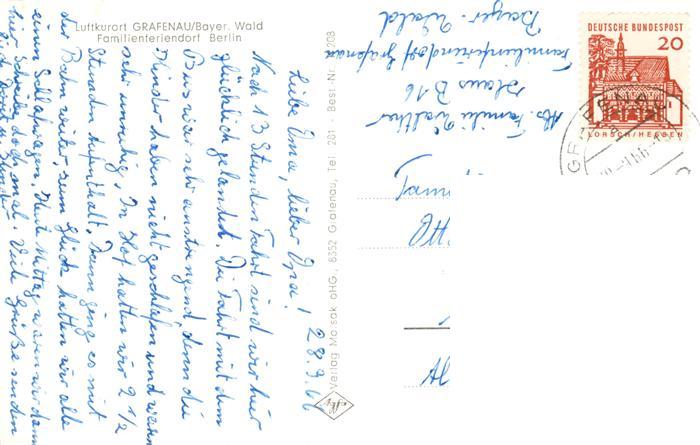 Luftkurort GRAFENAU/Bayer. Wald
Familienferiendorf Berlin
28.9.66
Liebe Oma, lieber Opa!
Nach 13 Stunden Fahrt sind wir hier
glücklich gelandet. Die Fahrt mit dem
Bus war sehr anstrengend, denn die
Kinder haben nicht geschlafen und waren
sehr unruhig. In Hof hatten wir 2 1/2
Stunden Aufenthalt, dann ging es mit
der Bahn weiter, zum Glück hatten wir alle
einen Schlafwagen. Heute Mittag waren wir dann
hier. Schreibe doch mal. Viele Grüße senden
Verlag Moisak oHG., 8352 Grafenau, Tel. 261 - Best.-Nr.
Abs. Familie Walter
Haus B 16
Familienferiendorf Grafenau
Bayer. Wald
DEUTSCHE BUNDESPOST
20
LORSCH/HESSEN
GRAFENAU